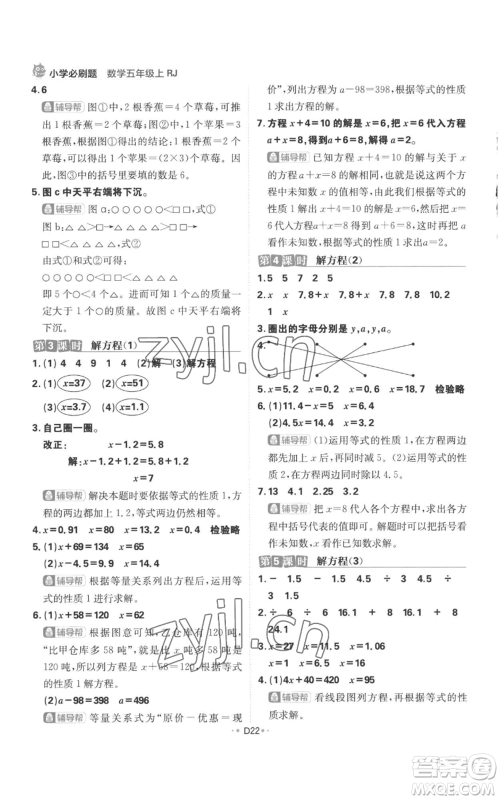 小学必刷题 数学五年级上 RJ
4. 6
辅导帮 图①中,2根香蕉=4个草莓,可推
出1根香蕉=2个草莓。图②中,1个苹果=
3根香蕉,所以1个苹果=(2×3)个草莓。因
此,图③中的括号里要填的数是6。
5. 图c中天平右端将下沉。
辅导帮 图a:○○○○○<□□,式①
图b:△△>□→△△△△>□□→
□□<△△△△,式②
由式①式②可知:
○○○○○<□□<△△△△
即5个○的总质量<4个△的总质量,所以
○的质量一定小于△的质量。故图c中天平右端将
下沉。
第3课时 解方程(1)
1. (1)4 4 9 1 4 (2)解 (3)解方程
2. (1) x=37 (2) x=51
(3) x=3.7 (4) x=1.1
3. 自己圈一圈。
改正: x-1.2=5.8
解: x-1.2+1.2=5.8+1.2
x=7
辅导帮 解决本题时要根据等式的性质1,在
方程的左右两边都加上1.2。
4. x=0.91 x=80 x=0.4 检验略
5. (1)x+69=134 x=65
(2)x-4.5=9.9 x=14.4
辅导帮 根据等量关系列出方程,再根据等
式的性质1解方程即可。
6. (1)x+58=120 x=62
辅导帮 由题意可知,乙仓库有120吨,
“比甲仓库多58吨”,即甲仓库吨数+58=
120,所以列方程为x+58=120,根据等式的
性质1解方程即可。
(2)a-98=398 a=496
辅导帮 等量关系为“原价-优惠=现
价”,列方程为a-98=398,根据等式的性质
1求出方程的解。
7. 方程x+4=10的解是x=6,把x=6代入方程
a+x=8,得到a+6=8,a=2。
辅导帮 已知方程x+4=10的解与方程
a+x=8的解相同,也就是说这两个方程
中未知数x的值相等,由此我们根据等式的
性质1解出方程x+4=10的解,然后把x=
6代入方程a+x=8,得到a+6=8,再把a
看作未知数,根据等式的性质1求出a=2。
第4课时 解方程(2)
1. 5 5 7 2 5
2. x x 7.8+x 7.8+x 6 6
1 x
3. 圈出的字母分别是y,a,y,a。
4.
5. x=5.2 x=0.2 x=18.8 检验略
6. (1)11.4-x=5 x=6.4
(2)4.5x=9 x=2
辅导帮 (1)运用等式的性质1,在方程两边
都先加x,再同时减5。(2)运用等式的性质
2,在方程两边同时除以4.5。
7. 13 4.1 2.25 3.2
辅导帮 把x=8代入各个方程中,求出各
个方程中括号代表的数即可。也可以把括号
看作未知数,根据等式的性质求出未知数的
值即可。
第5课时 解方程(3)
1. - 1.5 - 1.5 ÷ 3 ÷ 4.5
2. ÷ 6 ÷ 6 16.1 + 8 + 8
24.1
3. x=27 x=11.5 x=14 x=13
x=1 x=4
4. (1)4x+40=420 x=95
辅导帮 看线段图列方程,根据等式的
性质求解。
D22
zyjl.cn
zyjl.cn